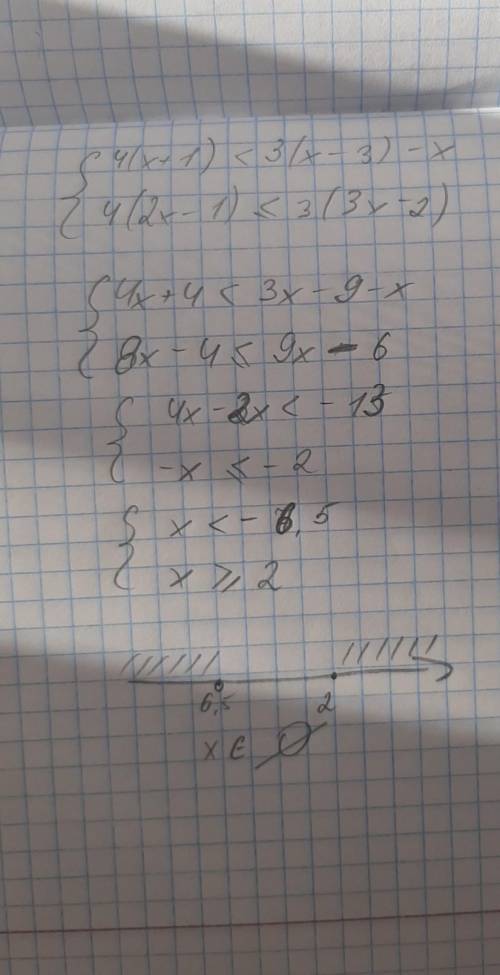 { 4(x+1) < 3(x-3) - x
4(2x-1) ≤ 3(3x-2)
{ 4x+4 < 3x-9-x
8x-4 ≤ 9x-6
{ 4x-2x < -13
-x ≤ -2
{ x < -6,5
x ≥ 2
6,5 2
x ∈ ∅